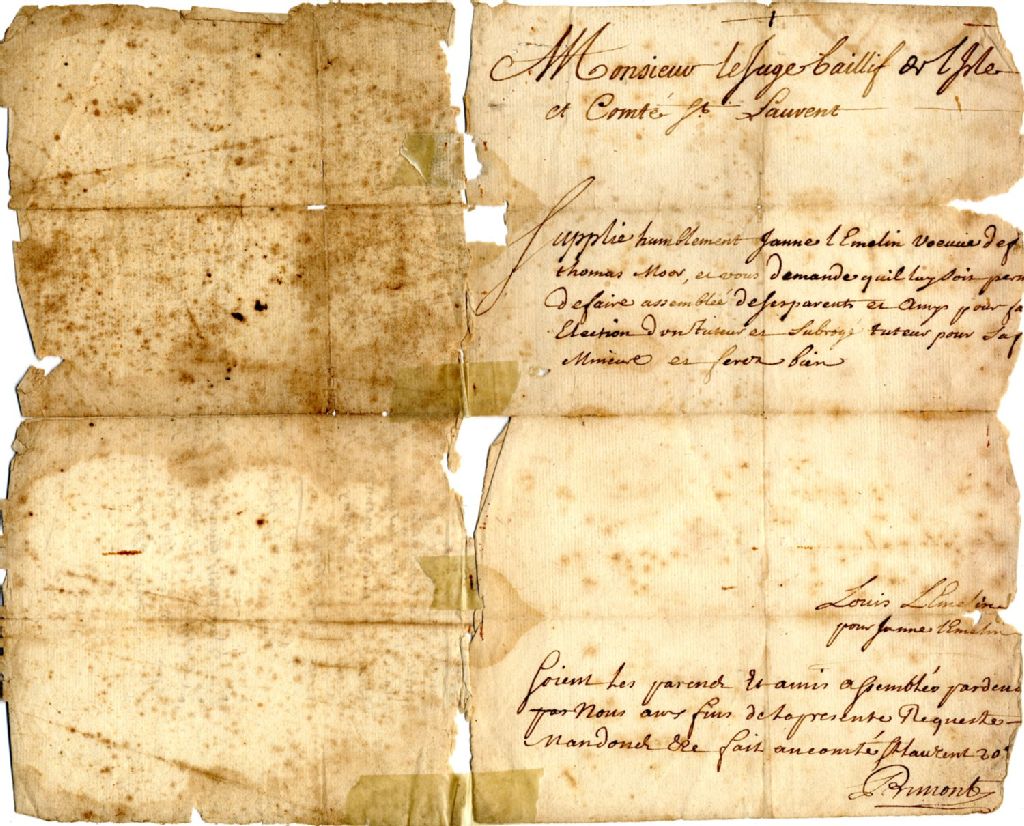 Monsieur le Juge baillif de l'Isle
et Comté St Laurent
Supplie humblement Janne l Emelin voeuve def
thomas Moor, et vous demande quil luy soit perm
de faire assembleé de ses parents et Amys pour fa
Election d'un tuteur et Subrogé tuteur pour Sa f
Mineure et ferez bien
Louis L Emelin
pour Janne l Emelin
soient Les parends Et amis assemblés pardeva
par Nous aux fins de la presente Requeste
Mandonds &c fait au comté St Laurent 20